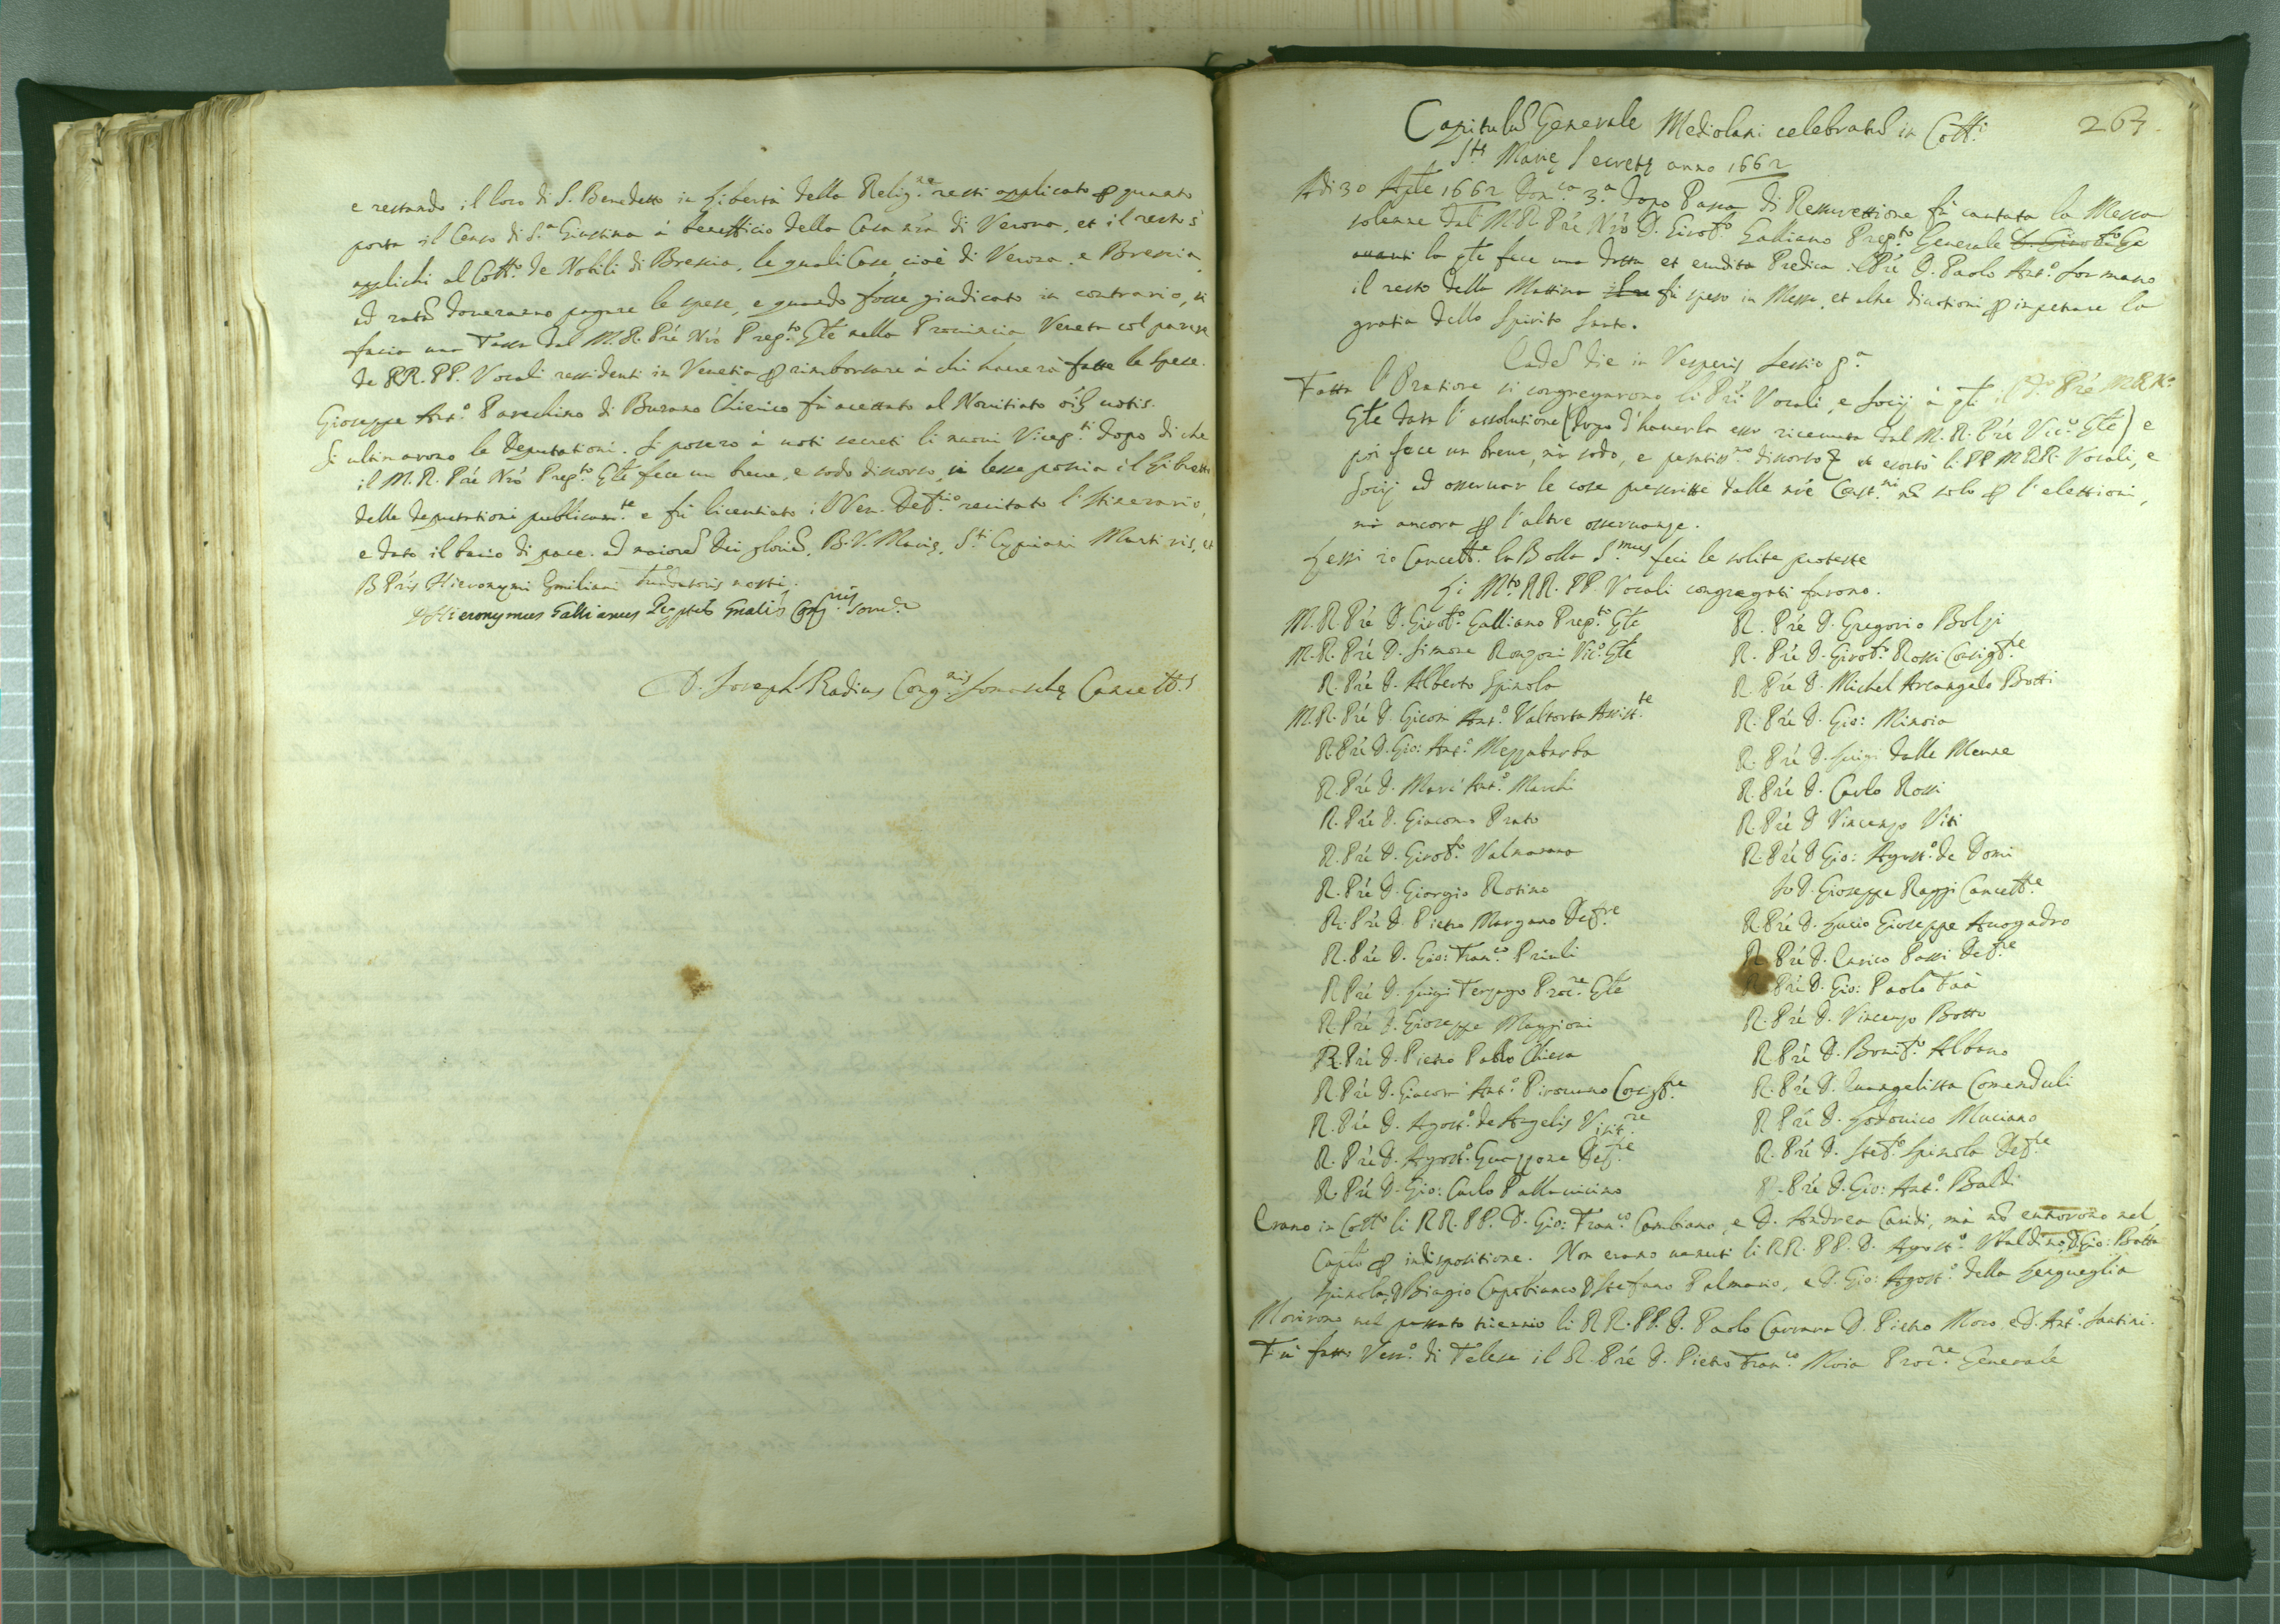 e restando il loco di S. Benedetto in libertà della Relig.ne resti applicato ꝑ quanto
porta il Censo di S.a Giustina à benefficio della Casa nr̃a di Verona, et il resto s'
applichi al Coll.o de Nobili di Brescia, le quali Case, cioè di Verona, e Brescia
ad ratã doveranno pagare le spese, e quando fosse giudicato in contrario, si
facia una Tassa dal M. R. Prẽ Nrõ Prep.to Gñle nella Provincia Veneta col parere
de RR. PP. Vocali residenti in Venetia ꝑ rimborsare à chi haverà fatte le spese.
Gioseppe Ant.o Pavechino di Burano Chierico fù accettato al Novitiato oĩbs votis.
Si ultimarono le Deputationi. Si posero à voti secreti li nuovi Vicep.ti dopo di che
il M. R. Prẽ Nrõ Prep.to Gñle fece un breve, e sodo discorso, si lesse poscia il Libretto
delle deputationi publicam.te e fù licentiato il Ven. Def.rio recitato l'Itinerario,
e dato il bacio di pace. ad maiorẽ Dei gloriã, B. V. Marię, S.ti Cypriani Martiris, et
B. Prĩs Hieronymi Emiliani Fundatoris nostri.
D. Hieronymus Gallianus Ppũs Gnalis Cong.nis Som.ę
D. Joseph Radius Cong.nis Somaschę Cancell.s
263.
Capitulũ Generale Mediolani celebratũ in Coll.i
S.tę Marię Secretę anno 1662
A di 30 Aple 1662 Dom.ca 3.a dopo Pasca di Resurettione fù cantata la Messa
solenne dal M. R. Prẽ Nrõ D. Girol.o Galliano Prep.to Generale D. Girol.o Ga
avanti la qle fece una dotta et erudita Predica il Prẽ D. Paolo Ant.o Sormano
il resto della Mattina fù speso in Messe, et altre divotioni ꝑ impetrare la
gratia dello Spirito Santo.
Eadẽ die in Vesperis Sessio p.a
Fatta l'Oratione si congregarono li Prĩ Vocali, e Socij à qli il D.o Prẽ M. R. N.o
Gñle data l'assolutione (dopo d'haverla esso ricevuta dal M. R. Prẽ Vic.o Gñle) e
poi fece un breve, mà sodo, e pesatiss.mo discorso et esortò li PP. M. RR. Vocali, e
Socij ad osservar le cose prescritte dalle nrẽ Cost.ni nõ solo ꝑ l'elettioni,
mà ancora ꝑ l'altre osservanze.
Lessi io Cancell.e la Bolla S.mus feci le solite proteste
Li M.to RR. PP. Vocali congregati furono.
M. R. Prẽ D. Girol.o Galliano Prep.to Gñle
M. R. Prẽ D. Simone Rongoni Vic.o Gñle
R. Prẽ D. Alberto Spinola
M. R. Prẽ D. Giacom Ant.o Valtorta Assist.te
R. Prẽ D. Gio: Ant.o Mezzabarba
R. Prẽ D. Marc' Ant.o Marchi
R. Prẽ D. Giacomo Prato
R. Prẽ D. Girol.o Valmarana
R. Prẽ D. Giorgio Rotino
R. Prẽ D. Pietro Morgano Def.re
R. Prẽ D. Gio: Fran.co Priuli
R. Prẽ D. Luigi Terzago Proc.re Gñle
R. Prẽ D. Gioseppe Maggioni
R. Prẽ D. Pietro Paolo Chiesa
R. Prẽ D. Giacom Ant.o Pirovano Consig.re
R. Prẽ D. Agost.o de Angelis Visit.re
R. Prẽ D. Agost.o Guazzone Def.re
R. Prẽ D. Gio: Carlo Pallavicino
R. Prẽ D. Gregorio Bolzi
R. Prẽ D. Girol.o Rossi Consig.re
R. Prẽ D. Michel Arcangelo Botti
R. Prẽ D. Gio: Minoia
R. Prẽ D. Luigi dalle Menne
R. Prẽ D. Carlo Rossi
R. Prẽ D. Vincenzo Viti
R. Prẽ D. Gio: Agost.o de Domi
Io D. Gioseppe Raggi Cancell.e
R. Prẽ D. Lucio Gioseppe Avogadro
R. Prẽ D. Enrico Passi Def.re
R. Prẽ D. Gio: Paolo Faà
R. Prẽ D. Vincenzo Botto
R. Prẽ D. Bonif.o Albano
R. Prẽ D. Evangelista Comenduli
R. Prẽ D. Lodovico Muciano
R. Prẽ D. Stef.o Spinola Def.re
R. Prẽ D. Gio: Ant.o Baldi
Erano in Coll.o li RR. PP. D. Gio: Fran.co Cambiano, e D. Andrea Caridi, mà nõ entrorono nel
Caplõ ꝑ indispositione. Non erano venuti li RR. PP. D. Agost.o Ubaldino, D. Gio: Batta
Spinola, D. Biagio Capobianco D. Stefano Palmario, e D. Gio: Agost.o della Lengueglia
Morirono nel passato triennio li RR. PP. D. Paolo Carrara D. Pietro Moro, e D. Ant.o Santini.
Fù fatto Vesc.o di Telese il R. Prẽ D. Pietro Fran.co Moia Proc.re Generale